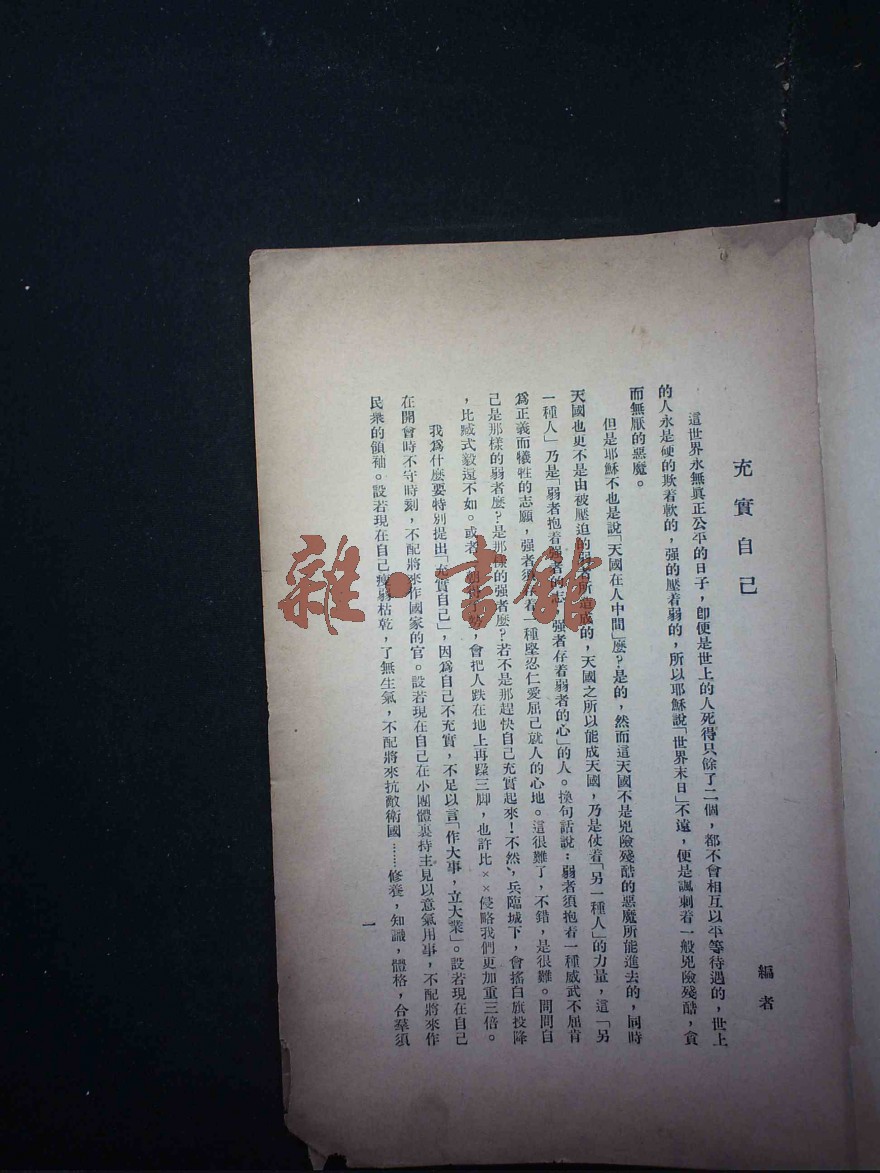 充實自己
編者
這世界永無眞正公平的日子，卽便是世上的人死得只餘了二個，都不會相互以平等待遇的，世上
的人永是硬的欺着軟的，强的壓着弱的，所以耶穌說「世界末日」不遠，便是諷刺着一般兇險殘酷，貪
而無厭的惡魔。
但是耶穌不也是說「天國在人中間」麼？是的，然而這天國不是兇險殘酷的惡魔所能進去的，同時
天國也更不是由被壓迫的弱者所造成的，天國之所以能成天國，乃是仗着「另一種人」的力量，這「另
一種人」乃是「弱者抱着强者的志，强者存着弱者的心」的人。換句話說：弱者須抱着一種威武不屈肯
爲正義而犧牲的志願，强者須存着一種堅忍仁愛屈己就人的心地。這很難了，不錯，是很難。問問自
己是那樣的弱者麼？是那樣的强者麼？若不是那趕快自己充實起來！不然，兵臨城下，會搖白旗投降
，比臧式毅還不如。或者，會把人跌在地上再踩三脚，也許比××侵略我們更加重三倍。
我爲什麼要特別提出「充實自己」，因爲自己不充實，不足以言「作大事，立大業」。設若現在自己
在開會時不守時刻，不配將來作國家的官。設若現在自己在小團體裏持主見以意氣用事，不配將來作
民衆的領袖。設若現在自己瘦弱枯乾，了無生氣，不配將來抗敵衛國……修養，知識，體格，合羣須
一
雜·書館